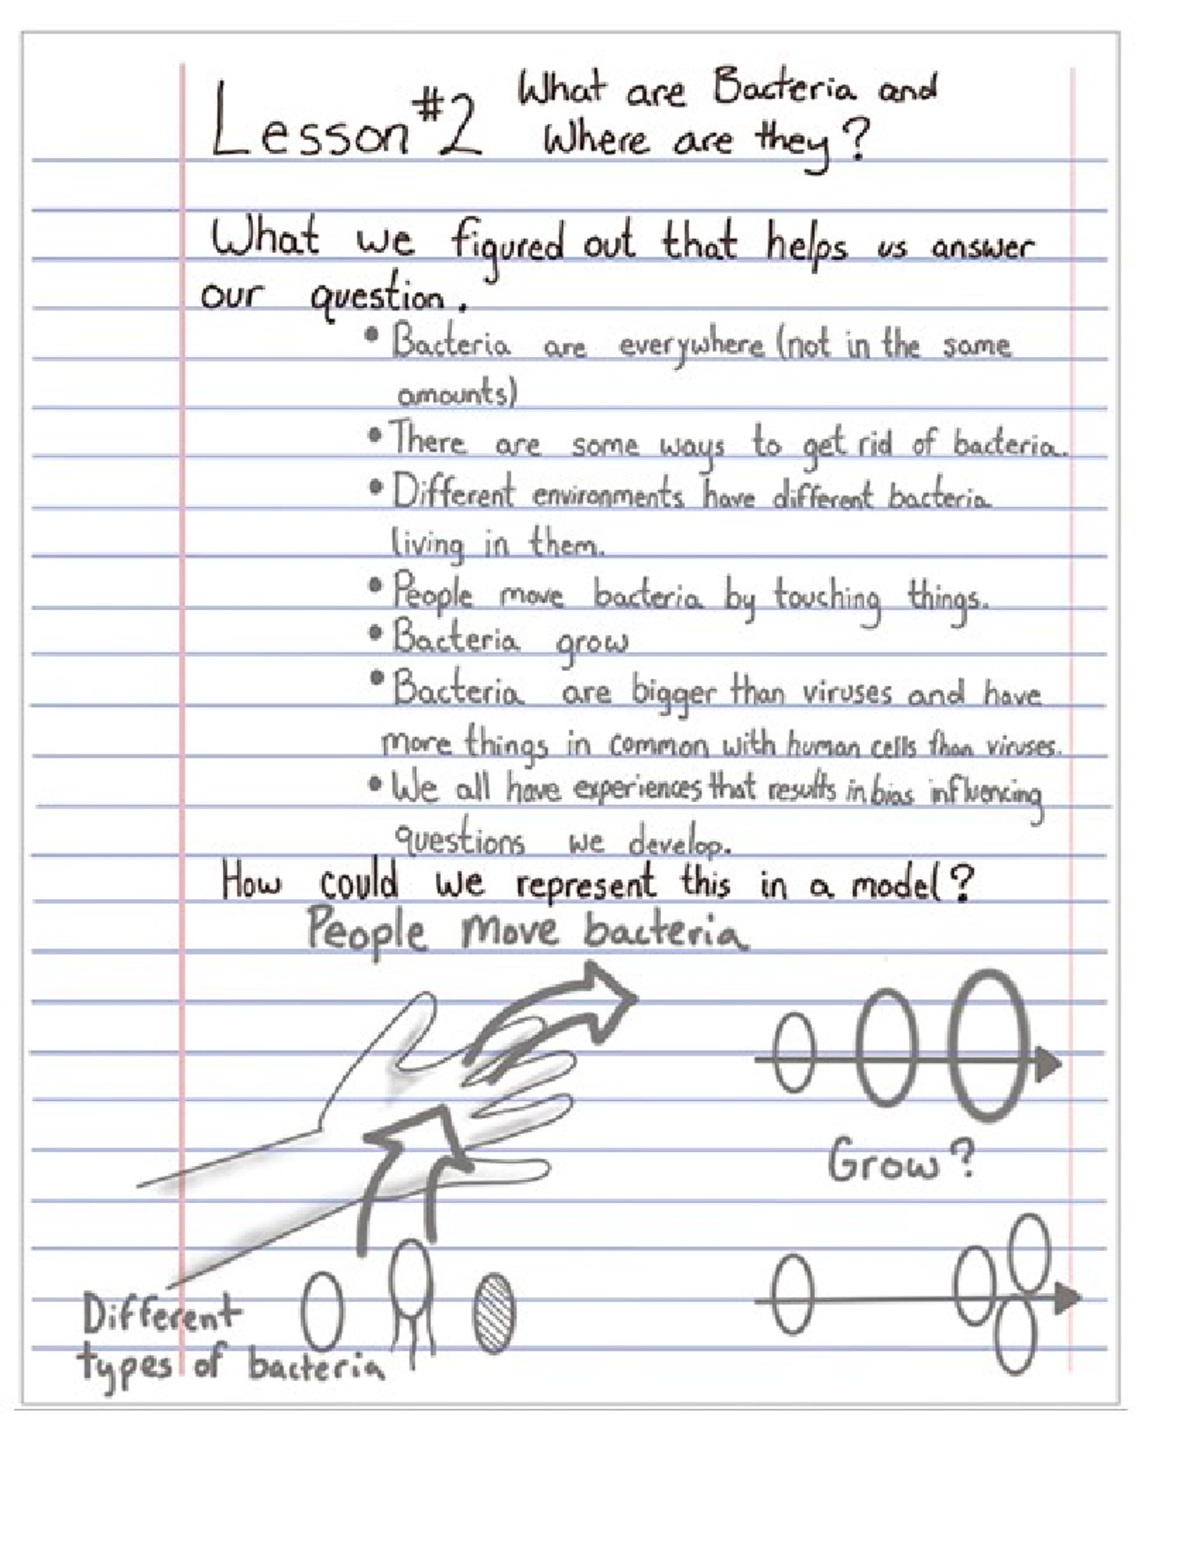 Lesson #2 What are Bacteria and
Where are they?
What we figured out that helps us answer
our question.
• Bacteria are everywhere (not in the same
amounts)
• There are some ways to get rid of bacteria.
• Different environments have different bacteria
living in them.
• People move bacteria by touching things.
• Bacteria grow
• Bacteria are bigger than viruses and have
more things in common with human cells than viruses.
• We all have experiences that results in bias influencing
questions we develop.
How could we represent this in a model?
People move bacteria
Grow?
Different
types of bacteria